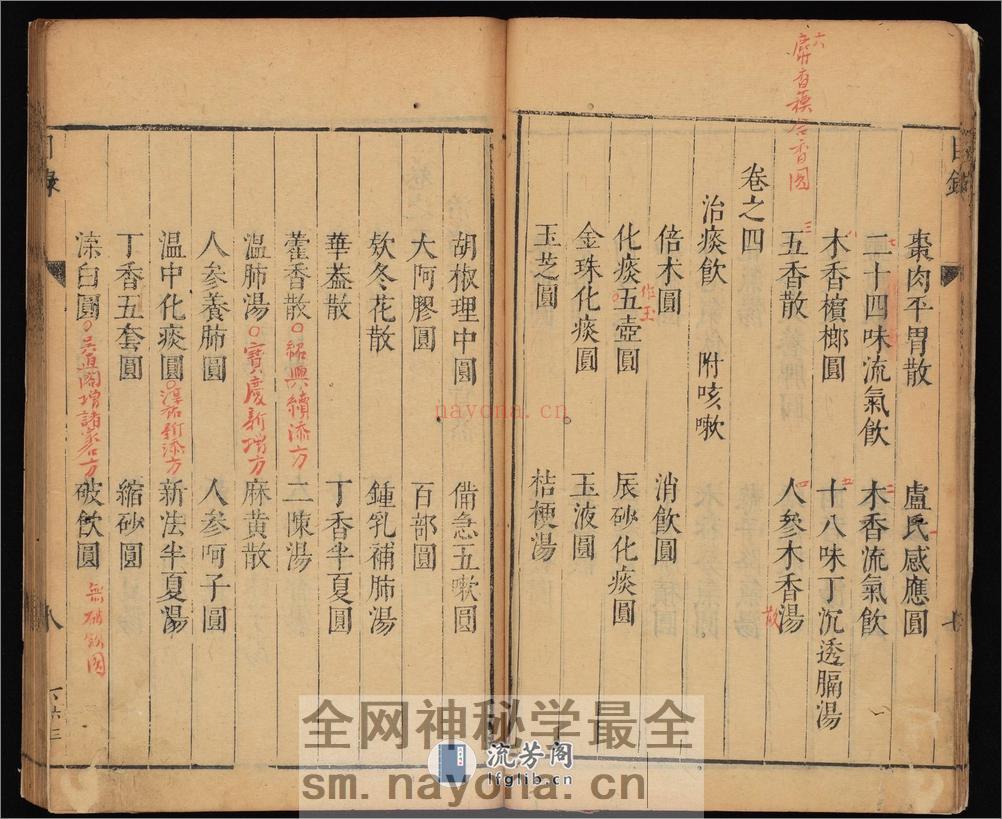 目錄
棗肉平胃散 盧氏感應圓
二十四味流氣飲 木香流氣飲
七 二 一
木香檳榔圓 十八味丁沉透膈湯
八 五
五香散 人參木香湯
三 四 散
六 麝香蘇合香圓
卷之四
治痰飲 附咳嗽
倍术圓 消飲圓
化痰五壺圓 辰砂化痰圓
作玉
金珠化痰圓 玉液圓
玉芝圓 桔梗湯
七
胡椒理中圓 備急五嗽圓
大阿膠圓 百部圓
欵冬花散 鍾乳補肺湯
華蓋散 丁香半夏圓
藿香散 紹興續添方 二陳湯
溫肺湯 寶慶新增方 麻黃散
人參養肺圓 人參呵子圓
溫中化痰圓 淳祐新添方 新法半夏湯
丁香五套圓 縮砂圓
渿白圓 吳直閣增諸家名方 破飲圓
無破飲圓
目錄
八
六三
nayona.cn
全网神秘学最全
流芳阁
lfglib.cn
sm.nayona.cn